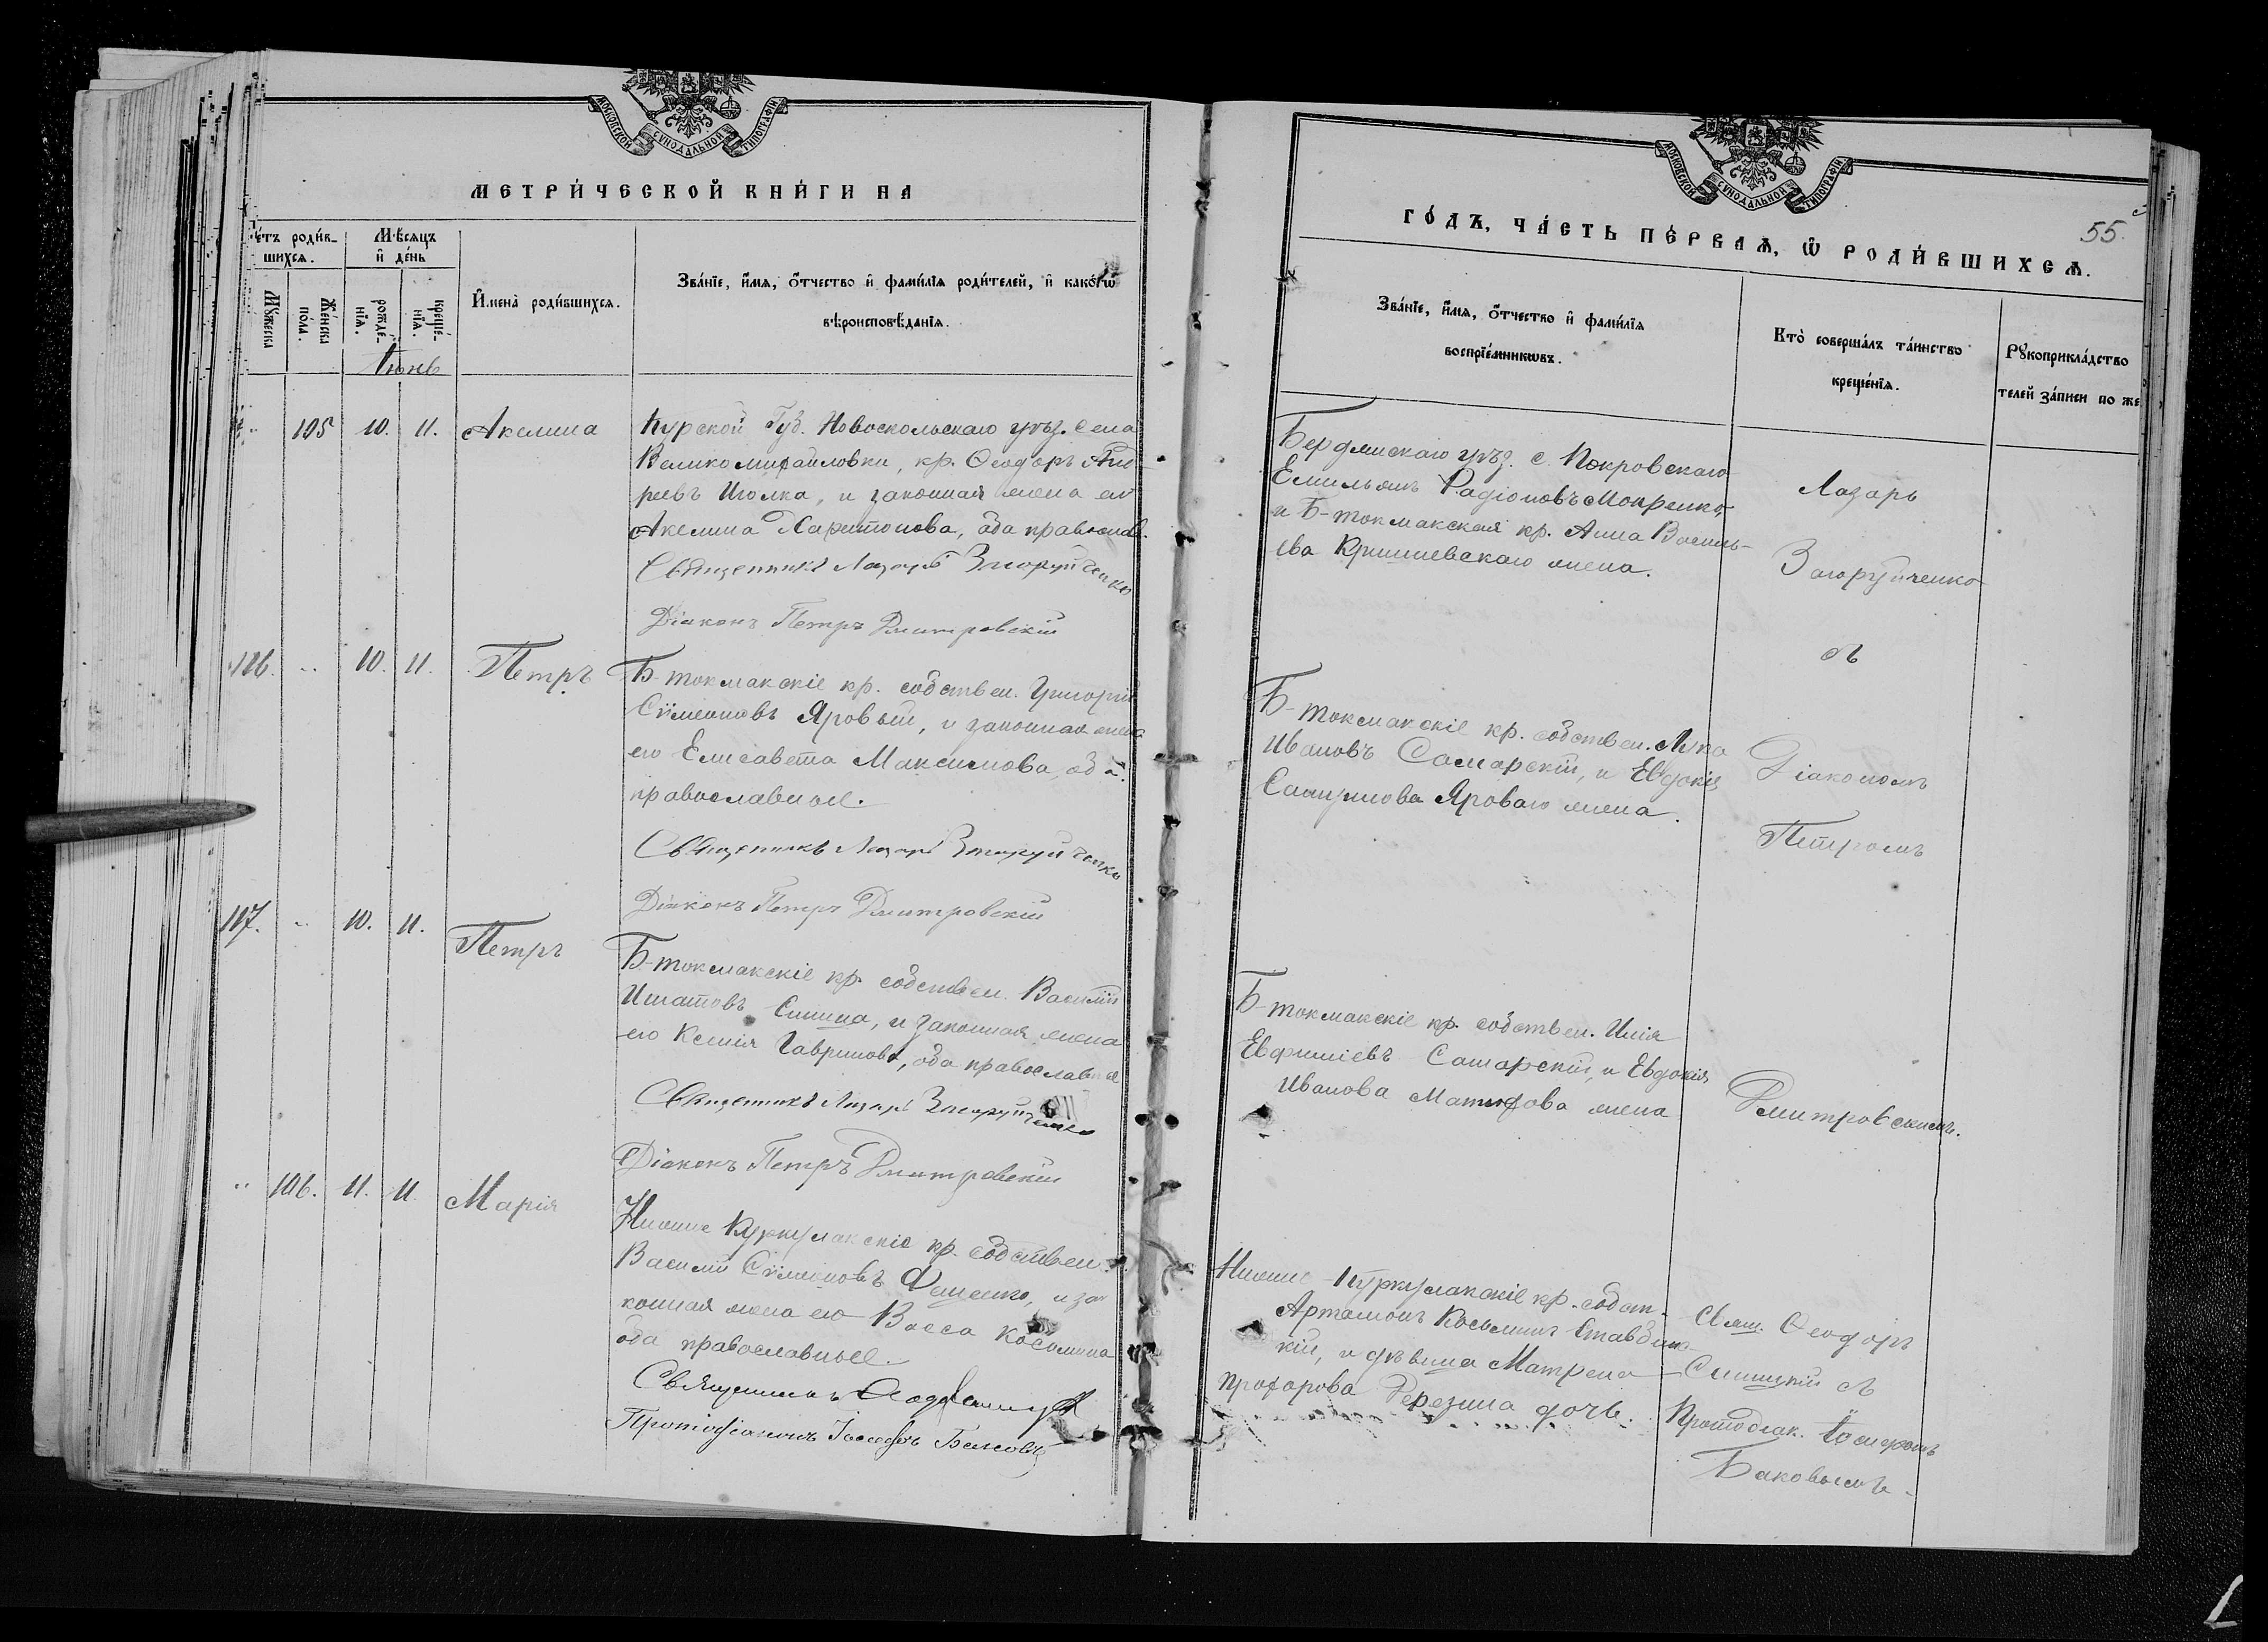 МОСКОВСКОЙ СѴНОДАЛЬНОЙ ТИПОГРАФІИ
МЕТРИ́ЧЕСКОЙ КНИ́ГИ НА
родив-
шихсѧ.
Мѣсѧцъ
и҆ де́нь
И҆мена̀ роди́вшихсѧ.
Зва́нїе, и҆́мѧ, ѻ҆́тчество и҆ фами́лїѧ роди́телей, и҆ како́гѡ
вѣроисповѣ́данїѧ.
Мꙋ́жеска
Же́нска
по́ла.
рожде́-
нїѧ.
креще́-
нїѧ.
Іюнь
105 10. 11. Акелина
Курской Губ. Новоскольскаго уѣз. села
Великомихайловки, кр. Ѳеодоръ
Иголка, и законная жена его
Акелина Харитонова, оба православ.
Священникъ Лазарь Загоруйченко
Діаконъ Петръ Дмитровскій
106. 10. 11. Петръ
Б-токмакскіе кр. собствен. Григорій
Сѵмеоновъ Яровый, и законная жена
его Елисавета Максимова, оба
православные.
Священникъ Лазарь Загоруйченко
Діаконъ Петръ Дмитровскій
107. 10. 11. Петръ
Б-токмакскіе кр. собствен. Василій
Игнатовъ Синица, и законная жена
его Ксенія Гаврилова, оба православные
Священникъ Лазарь Загоруйченко
Діаконъ Петръ Дмитровскій
106. 11. 11. Марія
Нижне Куркулакскіе кр. собствен.
Василій Сѵмеоновъ и за-
конная жена его Васса Косьмина
оба православные.
Священникъ Ѳеодоръ
Протодіаконъ Іосифъ Баковъ
МОСКОВСКОЙ СѴНОДАЛЬНОЙ ТИПОГРАФІИ
55.
ГО́ДЪ, ЧА́СТЬ ПЕ́РВАѦ, Ѡ҆ РОДИ́ВШИХСѦ.
Зва́нїе, и҆́мѧ, ѻ҆́тчество и҆ фами́лїѧ
воспрїе́мникѡвъ.
Кто̀ соверша́лъ та́инство
креще́нїѧ.
Рꙋкоприкла́дство
телей за́писи по же
Бердянскаго уѣз. с. Покровскаго
Емильянъ Радіоновъ Мокренко,
и Б-токмакская кр. Анна Василь-
ева Кришневскаго жена.
Лазарь
Загоруйченко
съ
Б-токмакскіе кр. собствен. Лука
Ивановъ Самарскій, и Евдокія
Яроваго жена.
Діакономъ
Петромъ
Б-токмакскіе кр. собствен. Илія
Евфиміевъ Самарскій, и Евдокія
Иванова жена
Дмитровскимъ.
Нижне Куркулакскіе кр. собст.
Артамонъ Косьминъ Ставиц-
кій, и дѣвица Матрена
Прохорова дочь.
Свящ. Ѳеодоръ
Синицкій съ
Протодіак. Іосифомъ
Баковымъ.